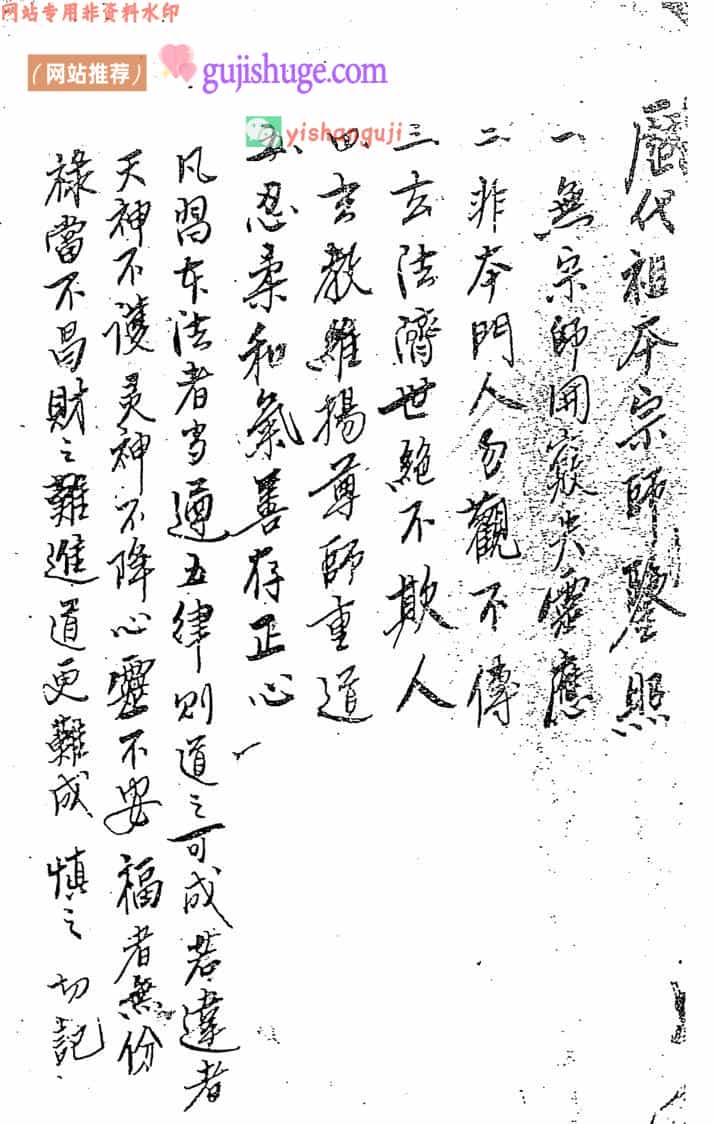 网站专用非资料水印
(网站推荐) gujishuge.com
yishanguji
歷代祖本宗師鑒照
一、無宗師開竅失靈應
二、非本門人勿觀不傳
三、玄法濟世絕不欺人
四、玄教維揚尊師重道
五、忍柔和氣善存正心
凡習本法者当遵五律则道之可成若違者
天神不護灵神不降心靈不安福者無份
祿當不昌財之難進道更難成 慎之 切記